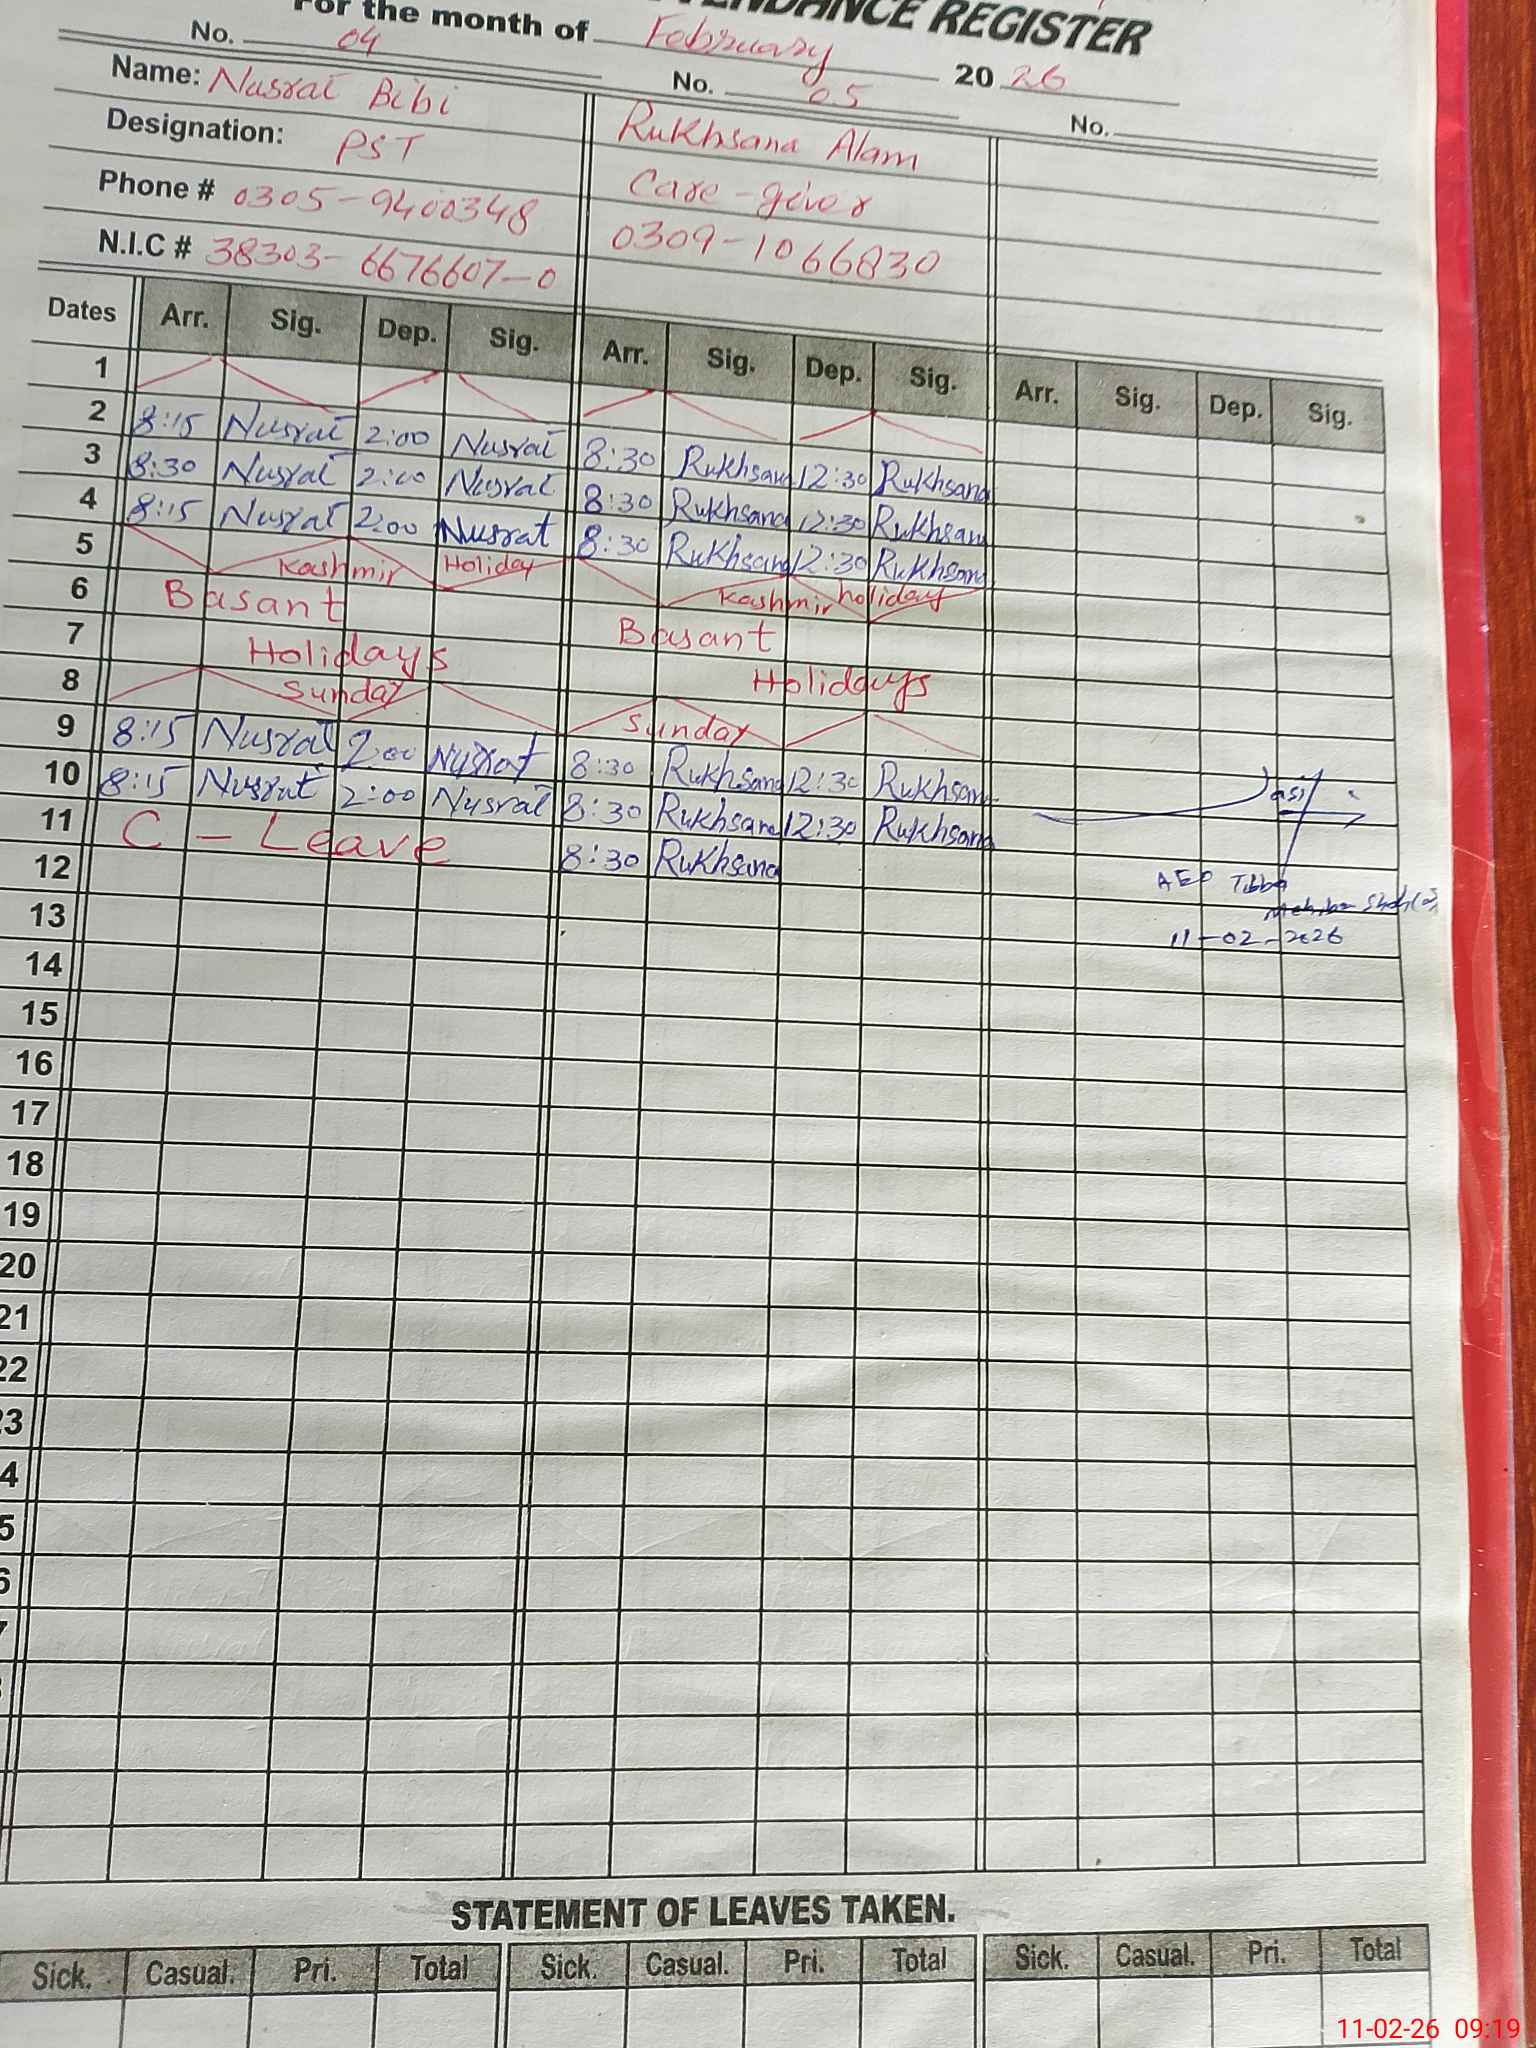 ATTENDANCE REGISTER
For the month of February 2026
No. 04 No. 05 No.
Name: Nusrat Bibi Rukhsana Alam
Designation: PST Care-giver
Phone # 0305-9400348 0309-1066830
N.I.C # 38303-6676607-0
Dates Arr. Sig. Dep. Sig. Arr. Sig. Dep. Sig. Arr. Sig. Dep. Sig.
1
2 8:15 Nusrat 2:00 Nusrat 8:30 Rukhsana 12:30 Rukhsana
3 8:30 Nusrat 2:00 Nusrat 8:30 Rukhsana 12:30 Rukhsana
4 8:15 Nusrat 2:00 Nusrat 8:30 Rukhsana 12:30 Rukhsana
5 Kashmir Holiday Kashmir holiday
6 Basant Basant
7 Holidays Holidays
8 Sunday Sunday
9 8:15 Nusrat 2:00 Nusrat 8:30 Rukhsana 12:30 Rukhsana
10 8:15 Nusrat 2:00 Nusrat 8:30 Rukhsana 12:30 Rukhsana
11 C - Leave 8:30 Rukhsana
12 AEO Tibba
13 11-02-2026
14
15
16
17
18
19
20
21
22
23
4
5
6
7
STATEMENT OF LEAVES TAKEN.
Sick. Casual. Pri. Total Sick. Casual. Pri. Total Sick. Casual. Pri. Total
11-02-26 09:19